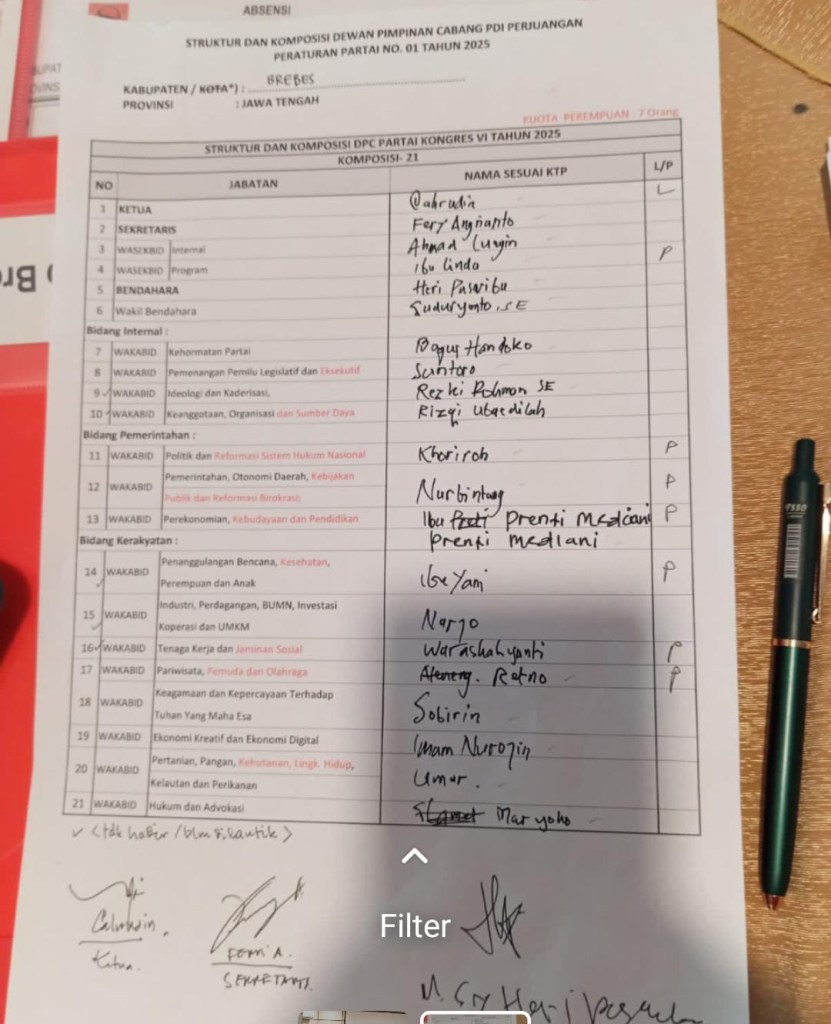 ABSENSI
STRUKTUR DAN KOMPOSISI DEWAN PIMPINAN CABANG PDI PERJUANGAN
PERATURAN PARTAI NO. 01 TAHUN 2025
KABUPATEN / KOTA*) : BREBES
PROVINSI : JAWA TENGAH
KUOTA PEREMPUAN : 7 Orang
STRUKTUR DAN KOMPOSISI DPC PARTAI KONGRES VI TAHUN 2025
KOMPOSISI- 21
NO JABATAN NAMA SESUAI KTP L/P
1 KETUA Cahrudin L
2 SEKRETARIS Fery Angrianto
3 WASEKBID Internal Ahmad
4 WASEKBID Program Ibu Linda P
5 BENDAHARA Heri Pasribu
6 Wakil Bendahara Suduryonto, SE
Bidang Internal :
7 WAKABID Kehormatan Partai Bagus Handoko
8 WAKABID Pemenangan Pemilu Legislatif dan Eksekutif Suntoro
9 ✓ WAKABID Ideologi dan Kaderisasi, Rezki Rohman SE
10 ✓ WAKABID Keanggotaan, Organisasi dan Sumber Daya Rizqi Ubaedilah
Bidang Pemerintahan :
11 WAKABID Politik dan Reformasi Sistem Hukum Nasional Khoriroh P
12 WAKABID Pemerintahan, Otonomi Daerah, Kebijakan
Publik dan Reformasi Birokrasi; Nurbintang P
13 WAKABID Perekonomian, Kebudayaan dan Pendidikan Ibu Prenti Mediani P
Prenti Mediani
Bidang Kerakyatan :
14 ✓ WAKABID Penanggulangan Bencana, Kesehatan,
Perempuan dan Anak Ibu Yani P
15 ✓ WAKABID Industri, Perdagangan, BUMN, Investasi
Koperasi dan UMKM Narjo
16 ✓ WAKABID Tenaga Kerja dan Jaminan Sosial Warashahyanti P
17 WAKABID Pariwisata, Pemuda dan Olahraga Retno P
18 WAKABID Keagamaan dan Kepercayaan Terhadap
Tuhan Yang Maha Esa Sobirin
19 WAKABID Ekonomi Kreatif dan Ekonomi Digital Imam Nurozin
20 WAKABID Pertanian, Pangan, Kehutanan, Lingk. Hidup,
Kelautan dan Perikanan Umar.
21 WAKABID Hukum dan Advokasi Slamet Maryoko
✓ <tdk hadir / blm
Cahrudin.
Ketua.
Ferri A.
SEKRETARIS.
Filter